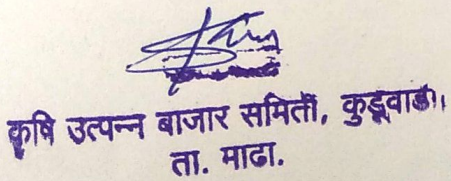 कृषि उत्पन्न बाजार समिती, कुर्डूवाडी.
ता. माढा.